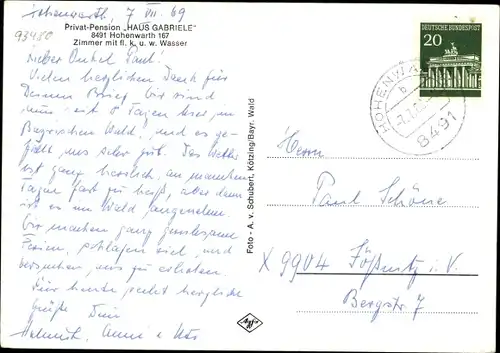 Hohenwarth, 7 VII. 69
93480
Privat-Pension „HAUS GABRIELE"
8491 Hohenwarth 167
Zimmer mit fl. k. u. w. Wasser
Lieber Onkel Paul!
Vielen herzlichen Dank für
Deinen Brief. Wir sind
nun seit 8 Tagen hier im
Bayrischen Wald, und es ge-
fällt uns sehr gut. Das Wetter
ist ganz herrlich, an manchen
Tagen fast zu heiß, aber dann
ist es im Wald angenehm.
Wir machen ganz
Ferien, schlafen viel, und
versuchen, uns zu erholen.
Für heute recht herzliche
Grüße Dein
Helmut, Anni u.
Foto - A. v. Schubert, Kötzing/Bayr. Wald
DEUTSCHE BUNDESPOST
20
HOHENWA
b
8491
Herrn
Paul Schöne
X 9904 Fößnitz i. V.
Bergstr. 7
Agfa